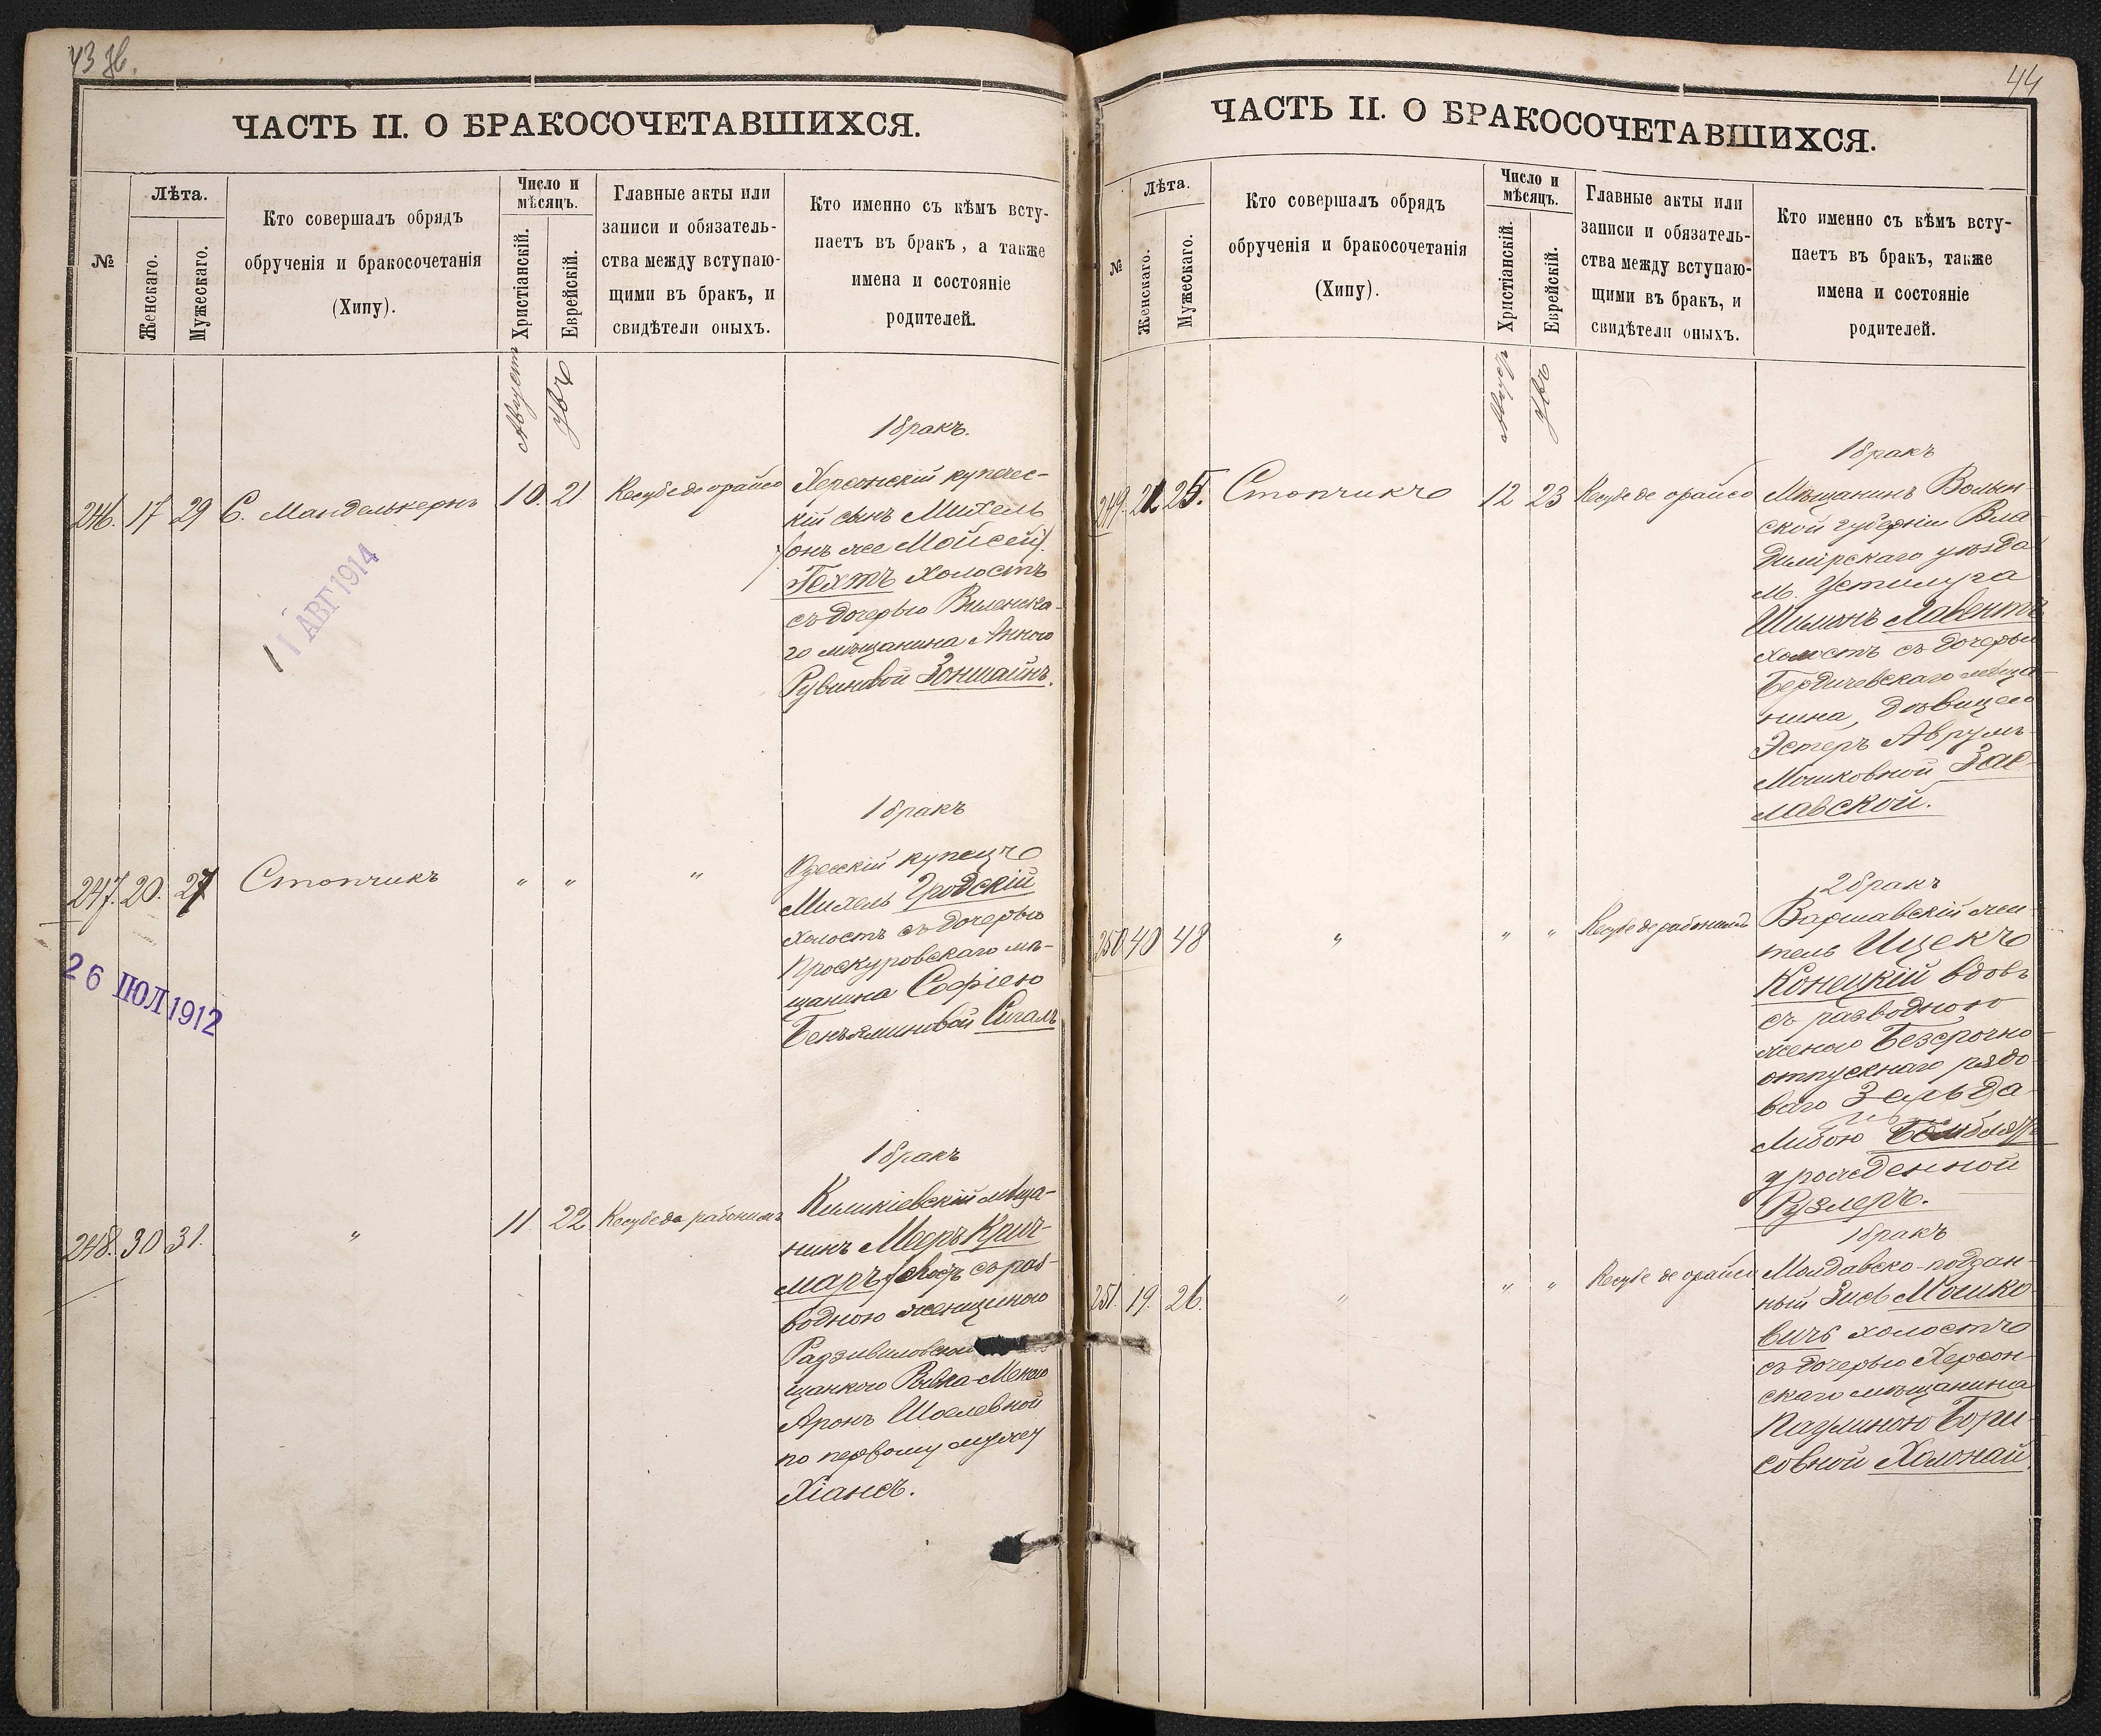 43 об.
ЧАСТЬ II. О БРАКОСОЧЕТАВШИХСЯ.
№
Лѣта.
Женскаго.
Мужескаго.
Кто совершалъ обрядъ
обрученія и бракосочетанія
(Хипу).
Число и
мѣсяцъ.
Христіанскій.
Еврейскій.
Главные акты или
записи и обязатель-
ства между вступаю-
щими въ бракъ, и
свидѣтели оныхъ.
Кто именно съ кѣмъ всту-
паетъ въ бракъ, а также
имена и состояніе
родителей.
Августъ
246. 17 29 С. Манделькернъ 10. 21 Кесубе де орайсо
1 бракъ.
Херсонскій купечес-
кій сынъ Михель
(онъ же Мойсей)
Гехтъ холостъ
съ дочерью Виленска-
го мѣщанина Анною
Рувиновой Зоншайнъ.
11 АВГ 1914
247. 20. 27 Стопчикъ " " "
1 бракъ
Одесскій купецъ
Михель Гродскій
холостъ съ дочерью
Проскуровскаго мѣ-
щанина Софіею
Беньяминовой Сигалъ
26 ІЮЛ 1912
248. 30 31. " 11 22 Кесубе де рабонимъ
1 бракъ
мѣща-
нинъ Мееръ Крич-
маръ съ раз-
водною женщиною
Радзивиловскою
щанкою Ривка-Менею
Аронъ Шоелевной
по первому мужу
44
ЧАСТЬ II. О БРАКОСОЧЕТАВШИХСЯ.
№
Лѣта.
Женскаго.
Мужескаго.
Кто совершалъ обрядъ
обрученія и бракосочетанія
(Хипу).
Число и
мѣсяцъ.
Христіанскій.
Еврейскій.
Главные акты или
записи и обязатель-
ства между вступаю-
щими въ бракъ, и
свидѣтели оныхъ.
Кто именно съ кѣмъ всту-
паетъ въ бракъ, также
имена и состояніе
родителей.
Август
249. 21 25. Стопчикъ 12 23 Кесубе де орайсо
1 бракъ
Мѣщанинъ Волын-
ской губерніи Вла-
димірскаго уѣзда
м. Устилуга
Шимонъ Лавентъ
холостъ съ дочерью
Бердичевскаго мѣща-
нина, дѣвицею
Эстеръ Аврумъ-
Мошковной Зас-
лавской.
250 40 48 " " " Кесубе де рабонимъ
2 бракъ
Варшавскій жи-
тель Ицекъ
Конецкій вдовъ
съ разводною
женою Безсрочно-
отпускнаго рядо-
ваго Зельда
Либою
урожденной
Рузлеръ.
251. 19. 26. " " " Кесубе де орайсо
1 бракъ
Молдавско-поддан-
ный Зись Мошко-
вичъ холостъ
съ дочерью Херсон-
скаго мѣщанина
Паулиною Бори-
совной Холонай